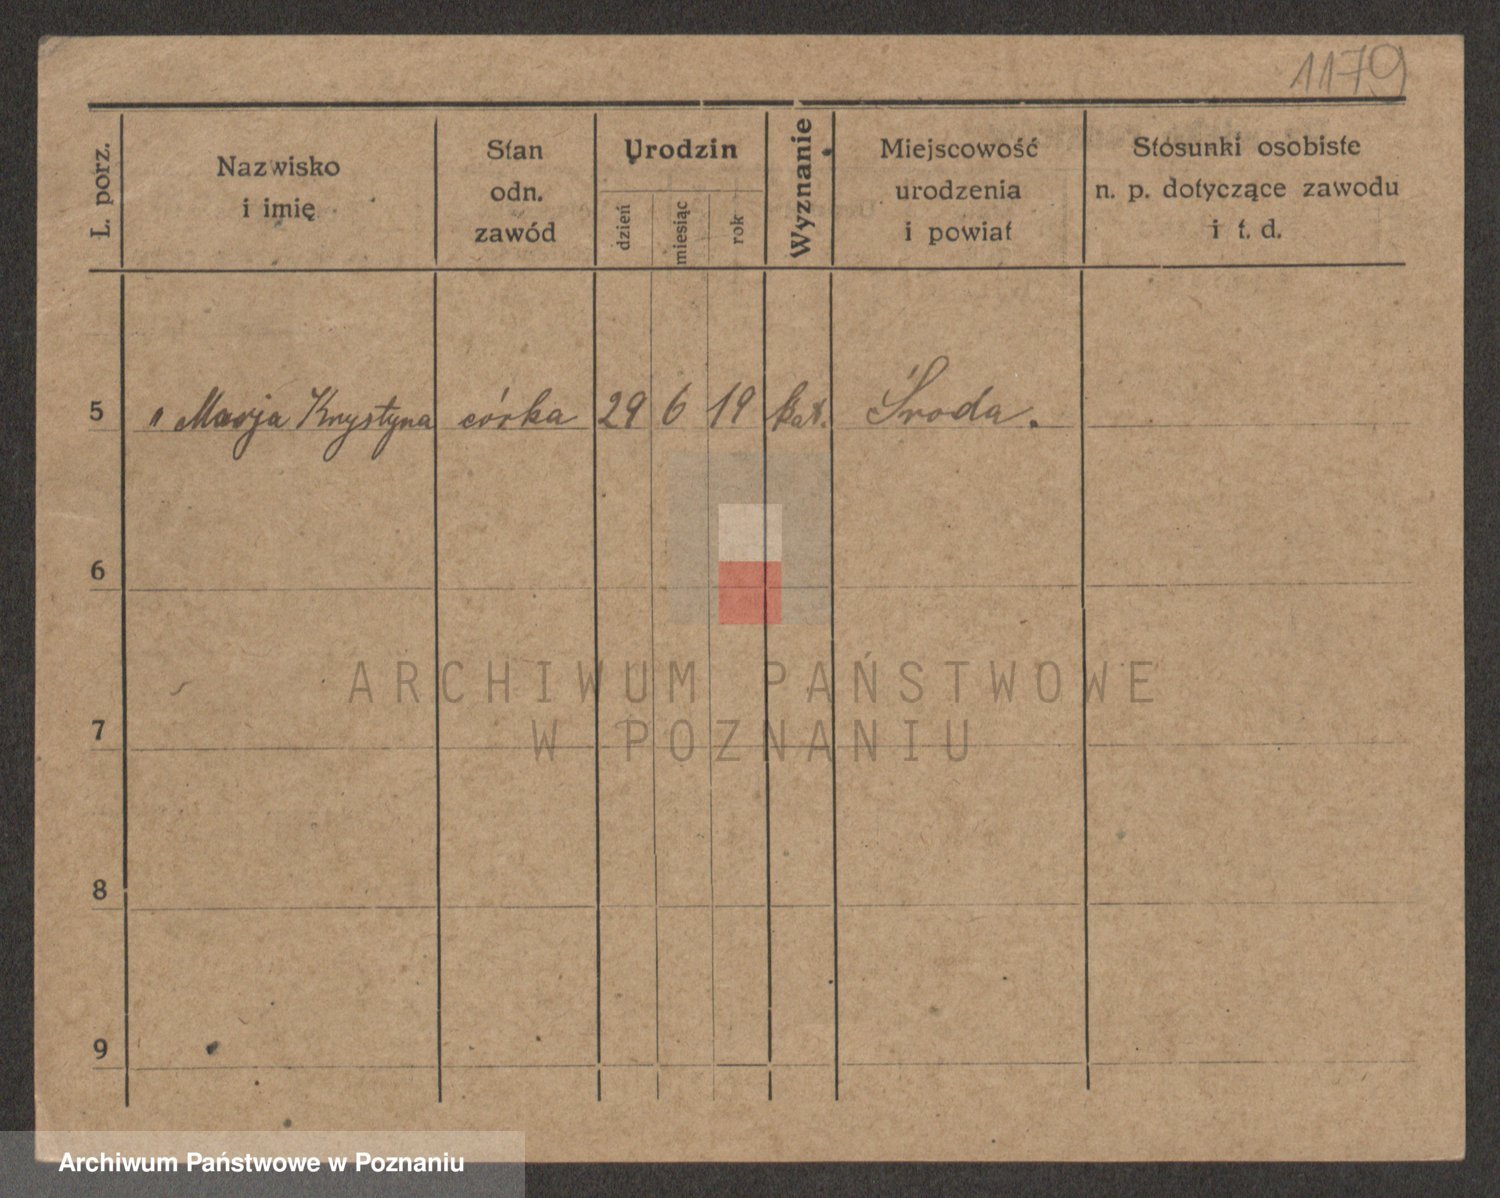 1179
L. porz.
Nazwisko
i imię
Stan
odn.
zawód
Urodzin
dzień
miesiąc
rok
Wyznanie
Miejscowość
urodzenia
i powiat
Stosunki osobiste
n. p. dotyczące zawodu
i t. d.
5 " Marja Krystyna córka 29 6 19 kat. Środa.
6
7
8
9
ARCHIWUM PAŃSTWOWE
W POZNANIU
Archiwum Państwowe w Poznaniu